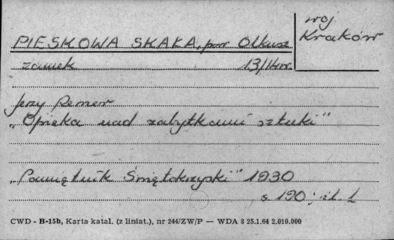 PIESKOWA SKAŁA, pow Olkusz
woj
Kraków
zamek 13/14w.
Jerzy Remer
"Opieka nad zabytkami sztuki"
"Pamiętnik Świętokrzyski" 1930
s 190; il. 1
CWD - B-15b, Karta katal. (z liniat.), nr 244/ZW/P — WDA 3 23.1.64 2.010.000